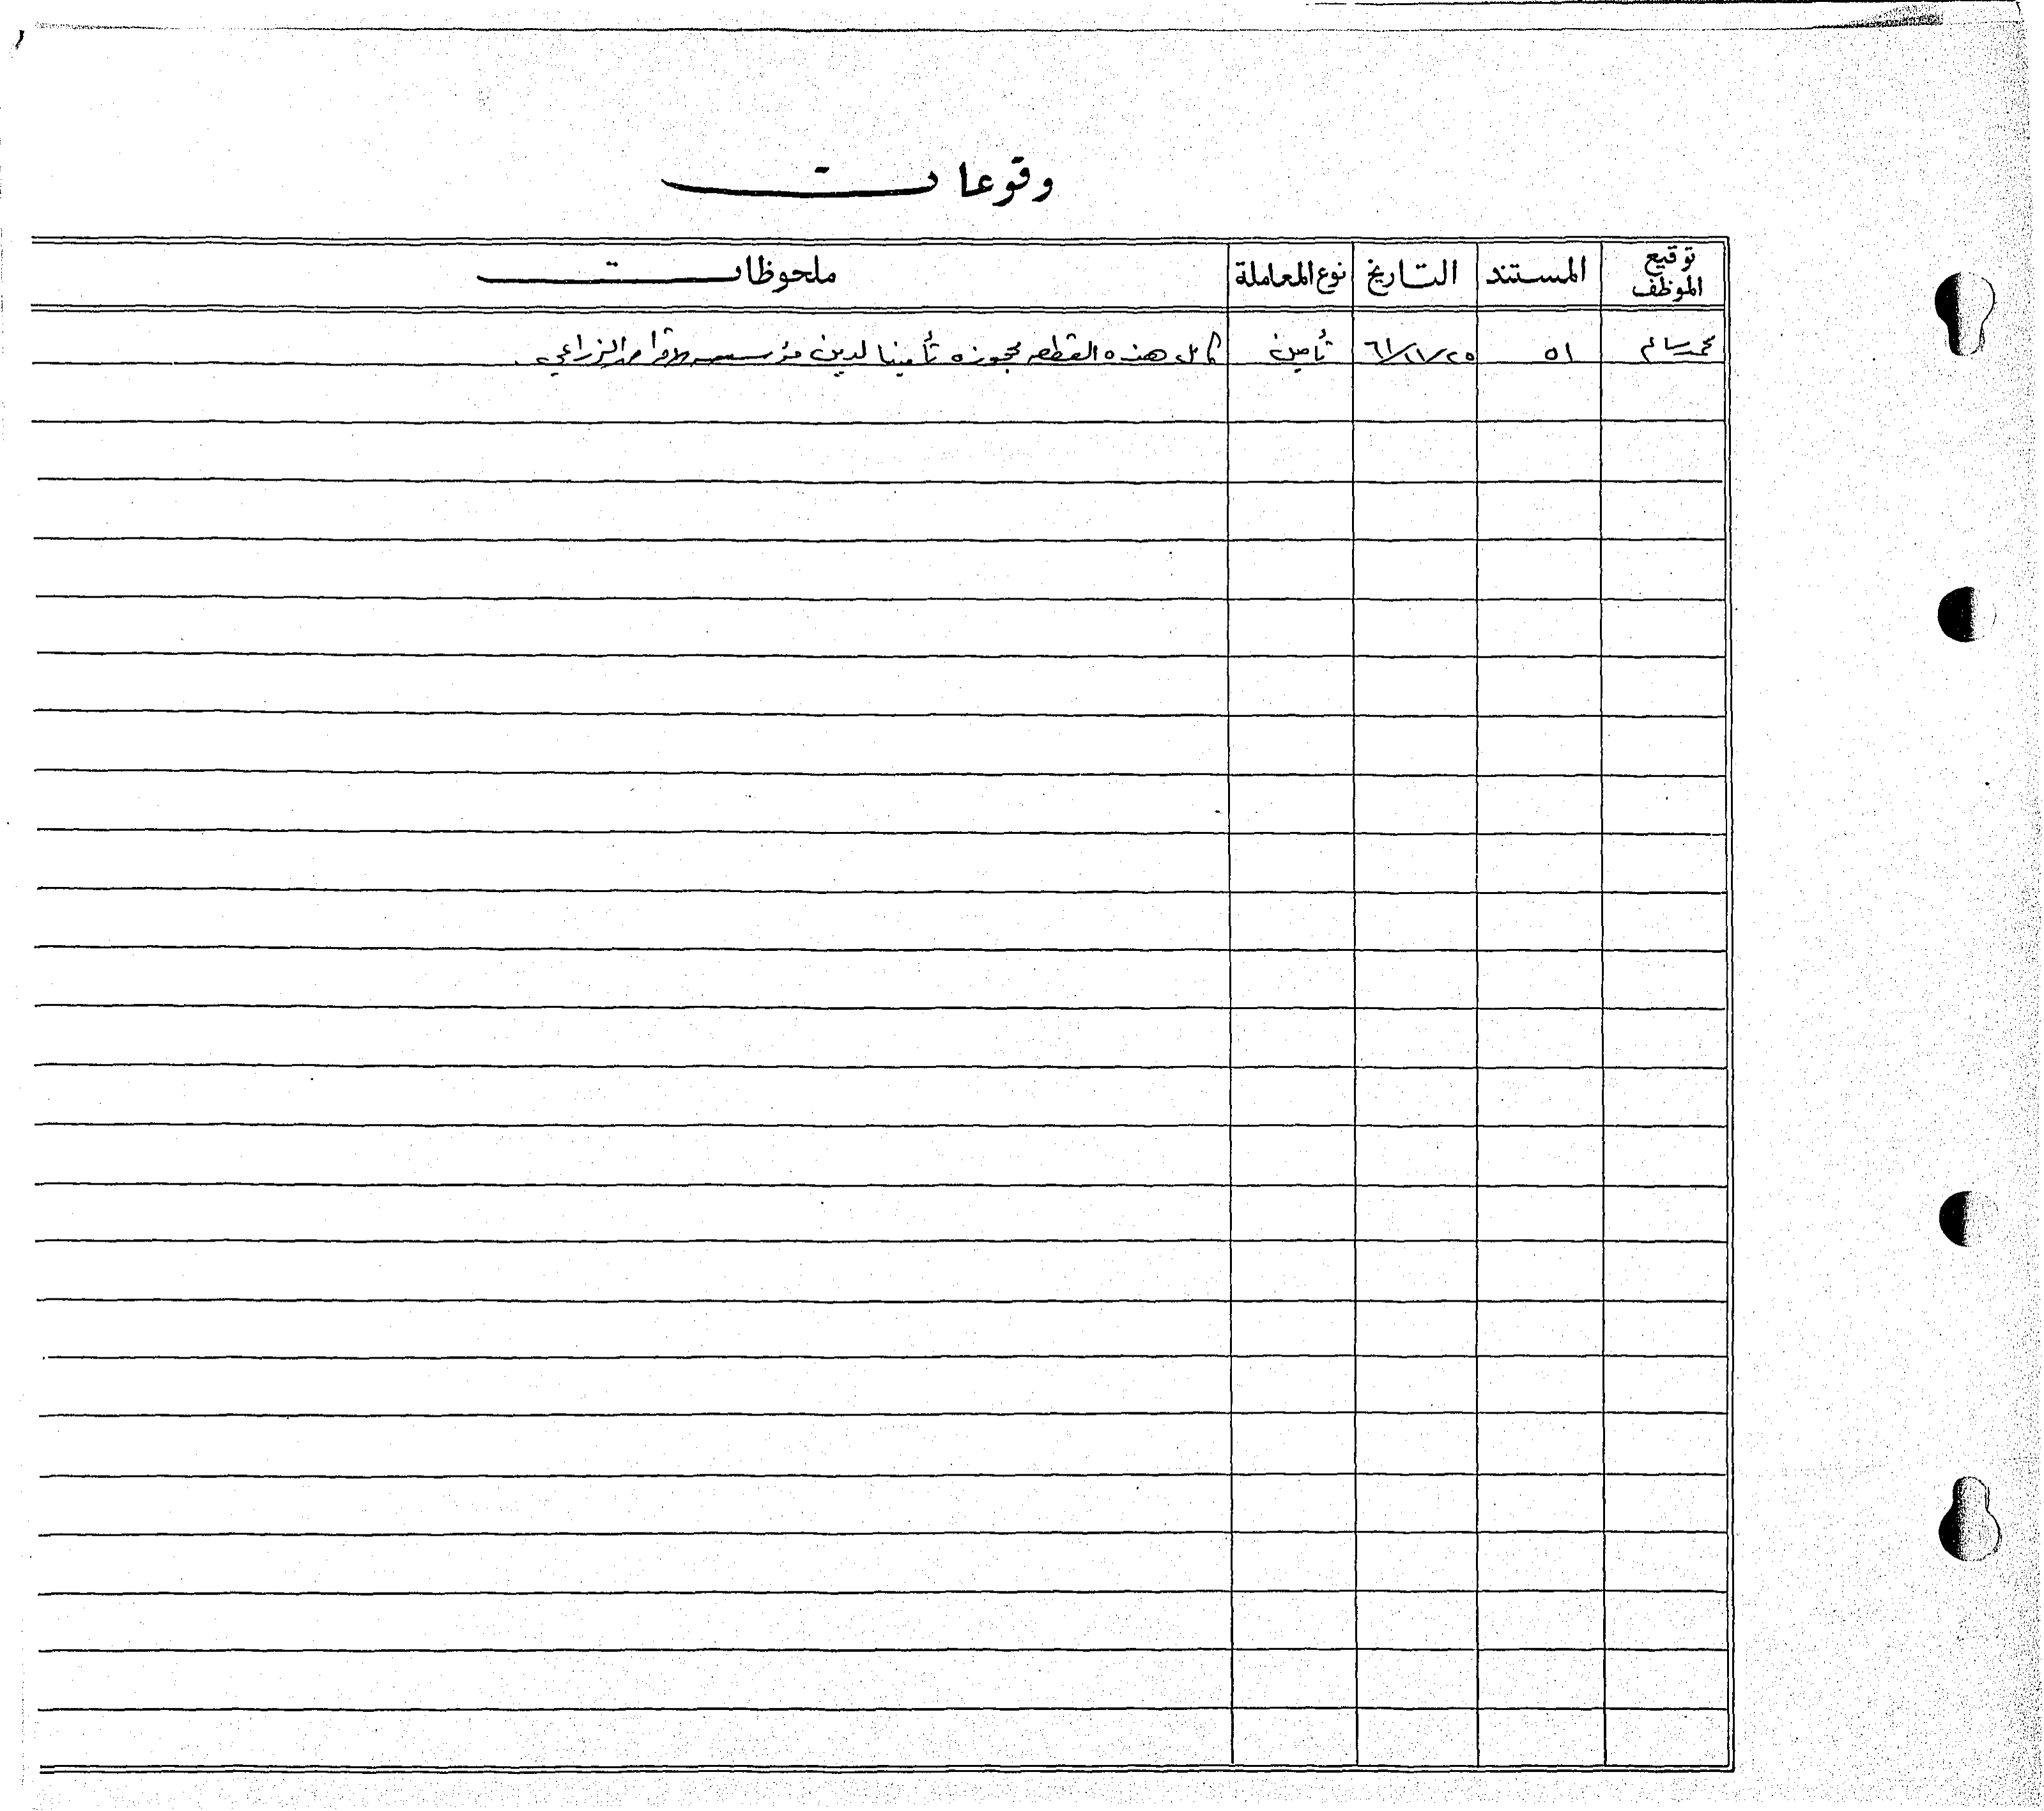 وقوعات
توقيع الموظف المستند التاريخ نوع المعاملة ملحوظات
محمد سالم ٥١ ٦١/١١/٢٥ تأمين كامل هذه القطعه محجوزه تأمينا لدين مؤسسه الاقراض الزراعي.